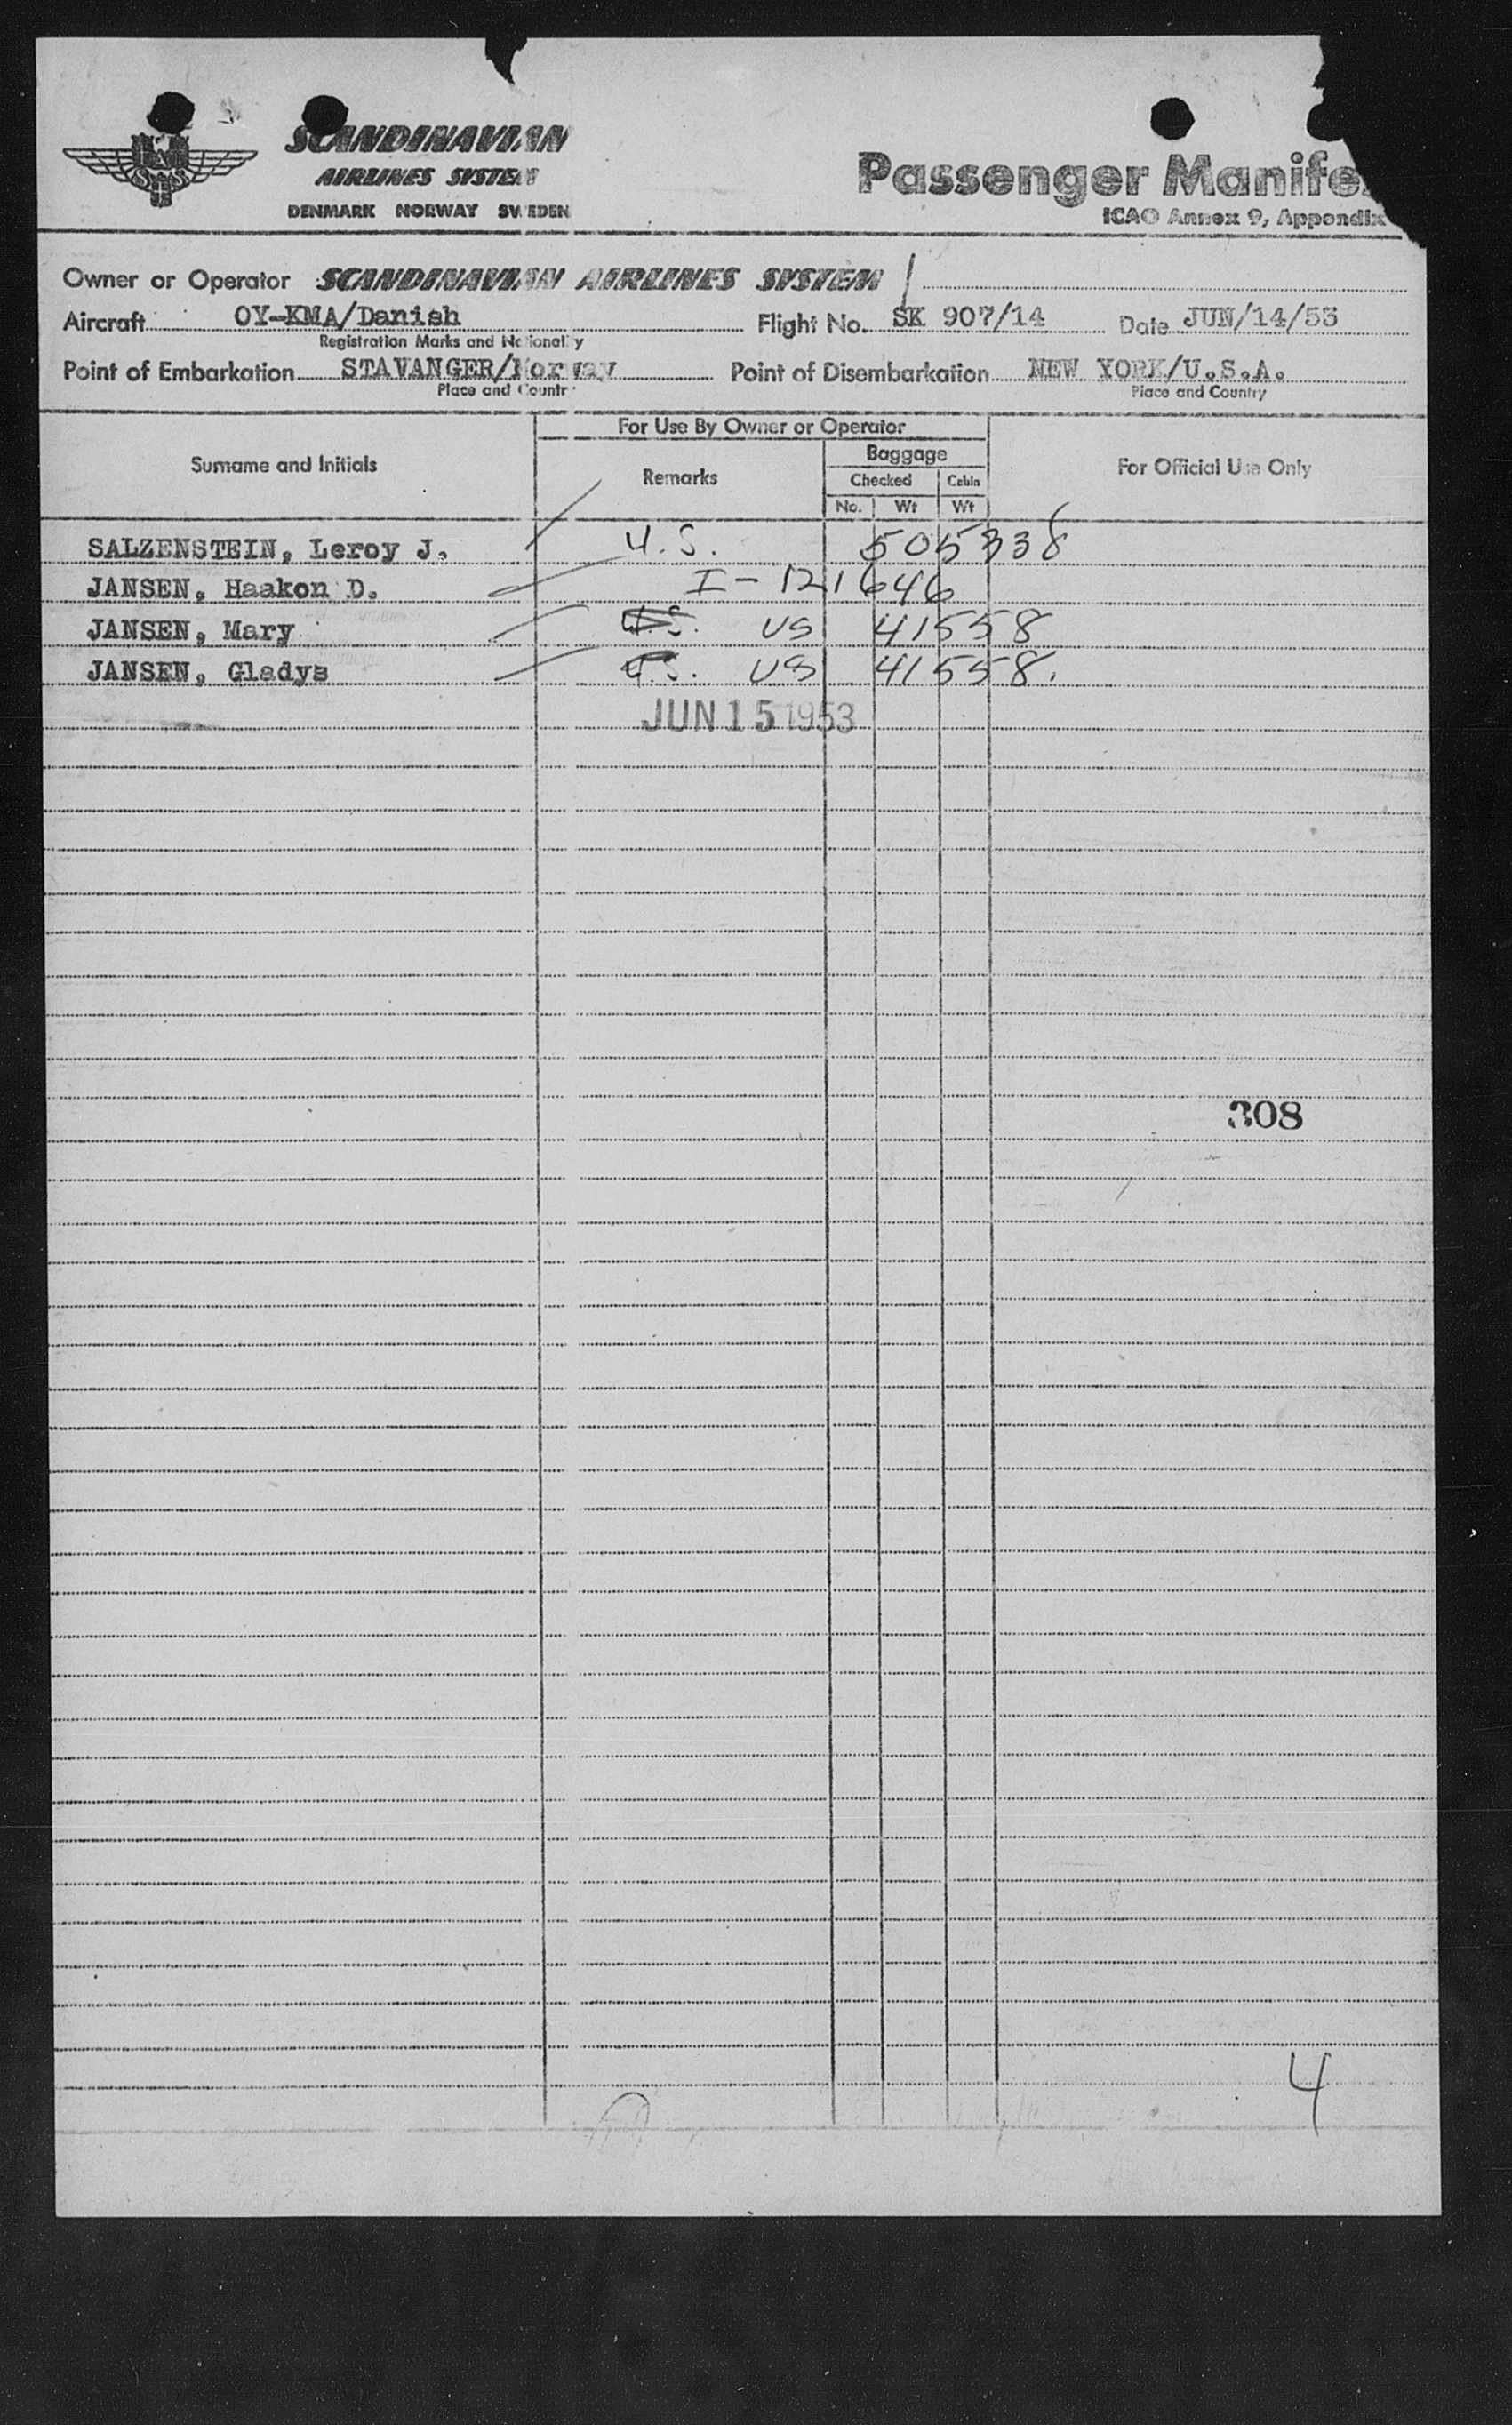 SCANDINAVIAN
AIRLINES SYSTEM
DENMARK NORWAY SWEDEN
SAS
Passenger Manifes
ICAO Annex 9, Appendix
Owner or Operator SCANDINAVIAN AIRLINES SYSTEM
Aircraft OY-KMA/Danish Flight No. SK 907/14 Date JUN/14/53
Registration Marks and Nationality
Point of Embarkation STAVANGER/Norway Point of Disembarkation NEW YORK/U.S.A.
Place and Country Place and Country
For Use By Owner or Operator
Surname and Initials Remarks Baggage For Official Use Only
Checked Cabin
No. Wt Wt
SALZENSTEIN, Leroy J. U.S. 505338
JANSEN, Haakon D. I-121646
JANSEN, Mary U.S. US 41558
JANSEN, Gladys U.S. US 41558.
JUN 15 1953
308
4